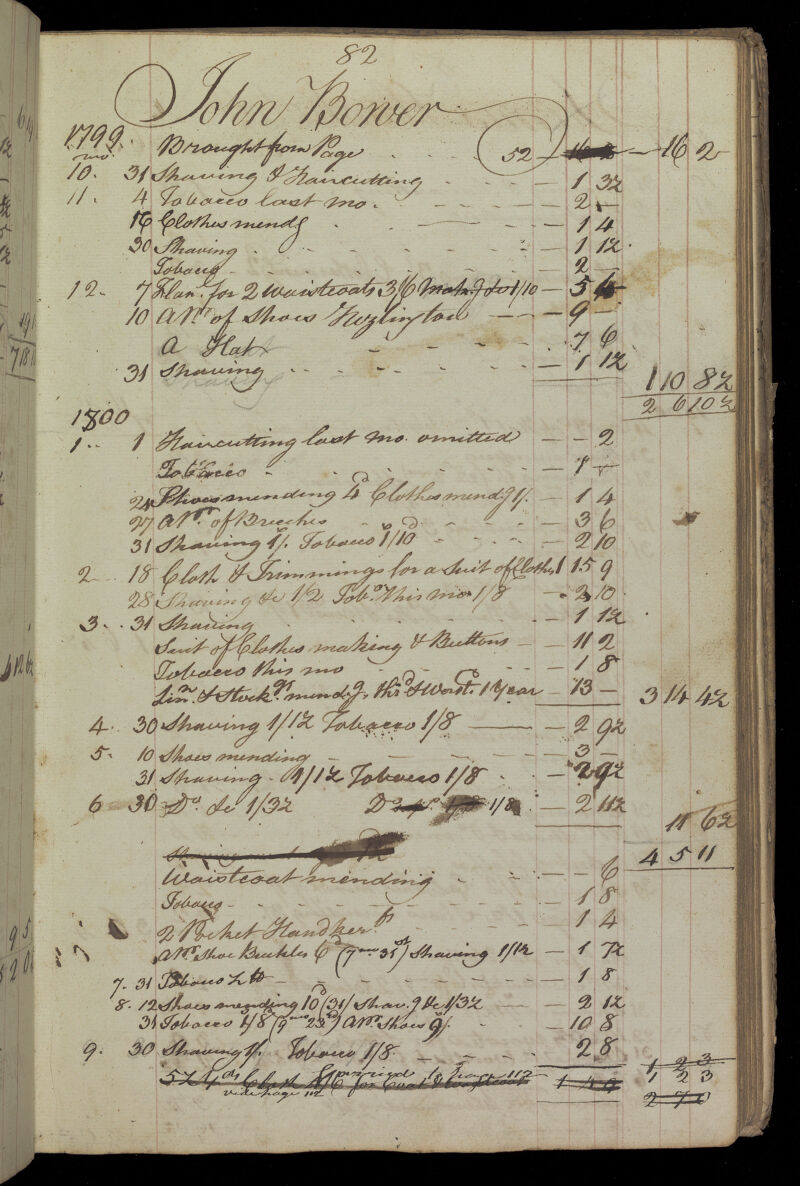 82
John Bower
1799.
mo. Brought from Page - - - 52 — 16 2 — 16 2
10. 31 Shaving & Haircutting - - - — 1 3½
11. 4 Tobacco last mo. - - — 2 —
16 Clothes mendg — 1 4
30 Shaving - - - — 1 1½
Tobacco - - - — 2 —
12. 7 Flan. for 2 Waistcoats 3/6 Makg do 1/10 — 5
10 A Pr. of Shoes Hezlington — 9 —
A Hat - - - 7 6
31 Shaving - - - — 1 1½
Shaving 1 10 8½
2 6 10½
1800
1.. 1 Haircutting last mo. omitted — - 2
Tobacco - - - — 1 —
24 Shoes mending 4d Clothes mendg 1/. — 1 4
27 A Pr. of Breeches - - — 3 6
31 Shaving 1/. Tobacco 1/10 - - — 2 10
2 18 Cloth & Trimmings for a Suit of Clothes 1 15 9
28 Shaving &c 1/2 Tobo. this mo 1/8 — 2 10
3. 31 Shaving - - - — 1 1½
Suit of Clothes making & Buttons — 11 2
Tobacco this mo - - - — 1 8
Linn. & Stockgs mendg. thrd & Worsd. 1 Year — 13 — 3 14 4½
4. 30 Shaving 1/1½ Tobacco 1/8 — 2 9½
5. 10 Shoes mending — 3 —
31 Shaving - 1/1½ Tobacco 1/8 - — 2 9½
6 30 Do. &c 1/3½ Do 1/8 — 2 11½
11 6½
4 5 11
Waistcoat mending - - - 6
Tobacco - - - 1 8
2 Pocket Handkerfs — 1 4
A Pr. Shoe Buckles 6d (7mo 31st) Shaving 1/1½ — 1 7½
7. 31 Tobacco - - - 1 8
8. 12 Shoes mending 10d (31) Shavg &c 1/3½ — 2 1½
31 Tobacco 1/8 (9mo 23d) A Pr. Shoes 9/. - 10 8
9. 30 Shaving 1/. Tobacco 1/8 - - - 2 8
1 2 3
5½ yds Cloth for Coat & Waistcoat 1 2 3
carried to page 112
vide page 112 2 7 0